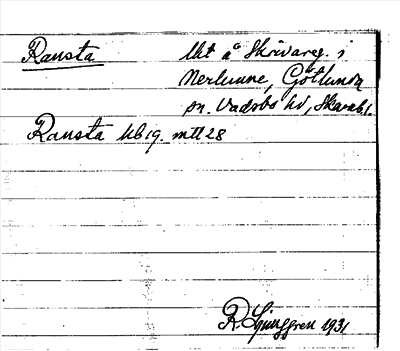 Ransta lht å Skrivareg. i
Nerlunne, Götlunda
sn. Vadsbo hd, Skarab l.
Ransta Ub 19. mtl 28
R. Ljunggren 1931